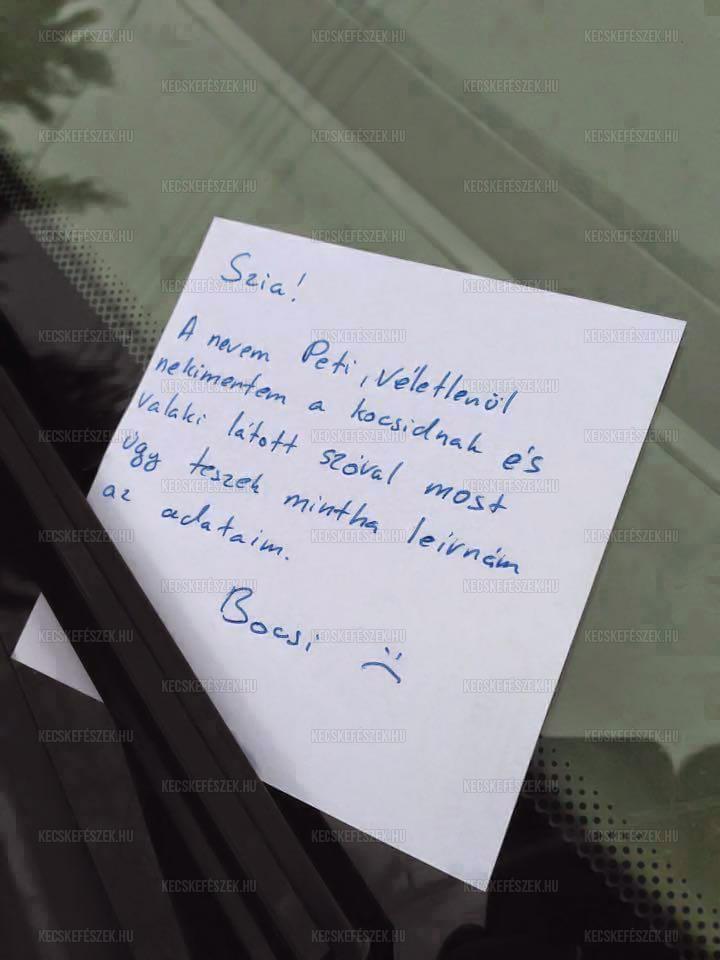 Szia!
A nevem Peti, véletlenül
nekimentem a kocsidnak és
valaki látott szóval most
úgy teszek mintha leírnám
az adataim.
Bocsi :(
KECSKEFÉSZEK.HU